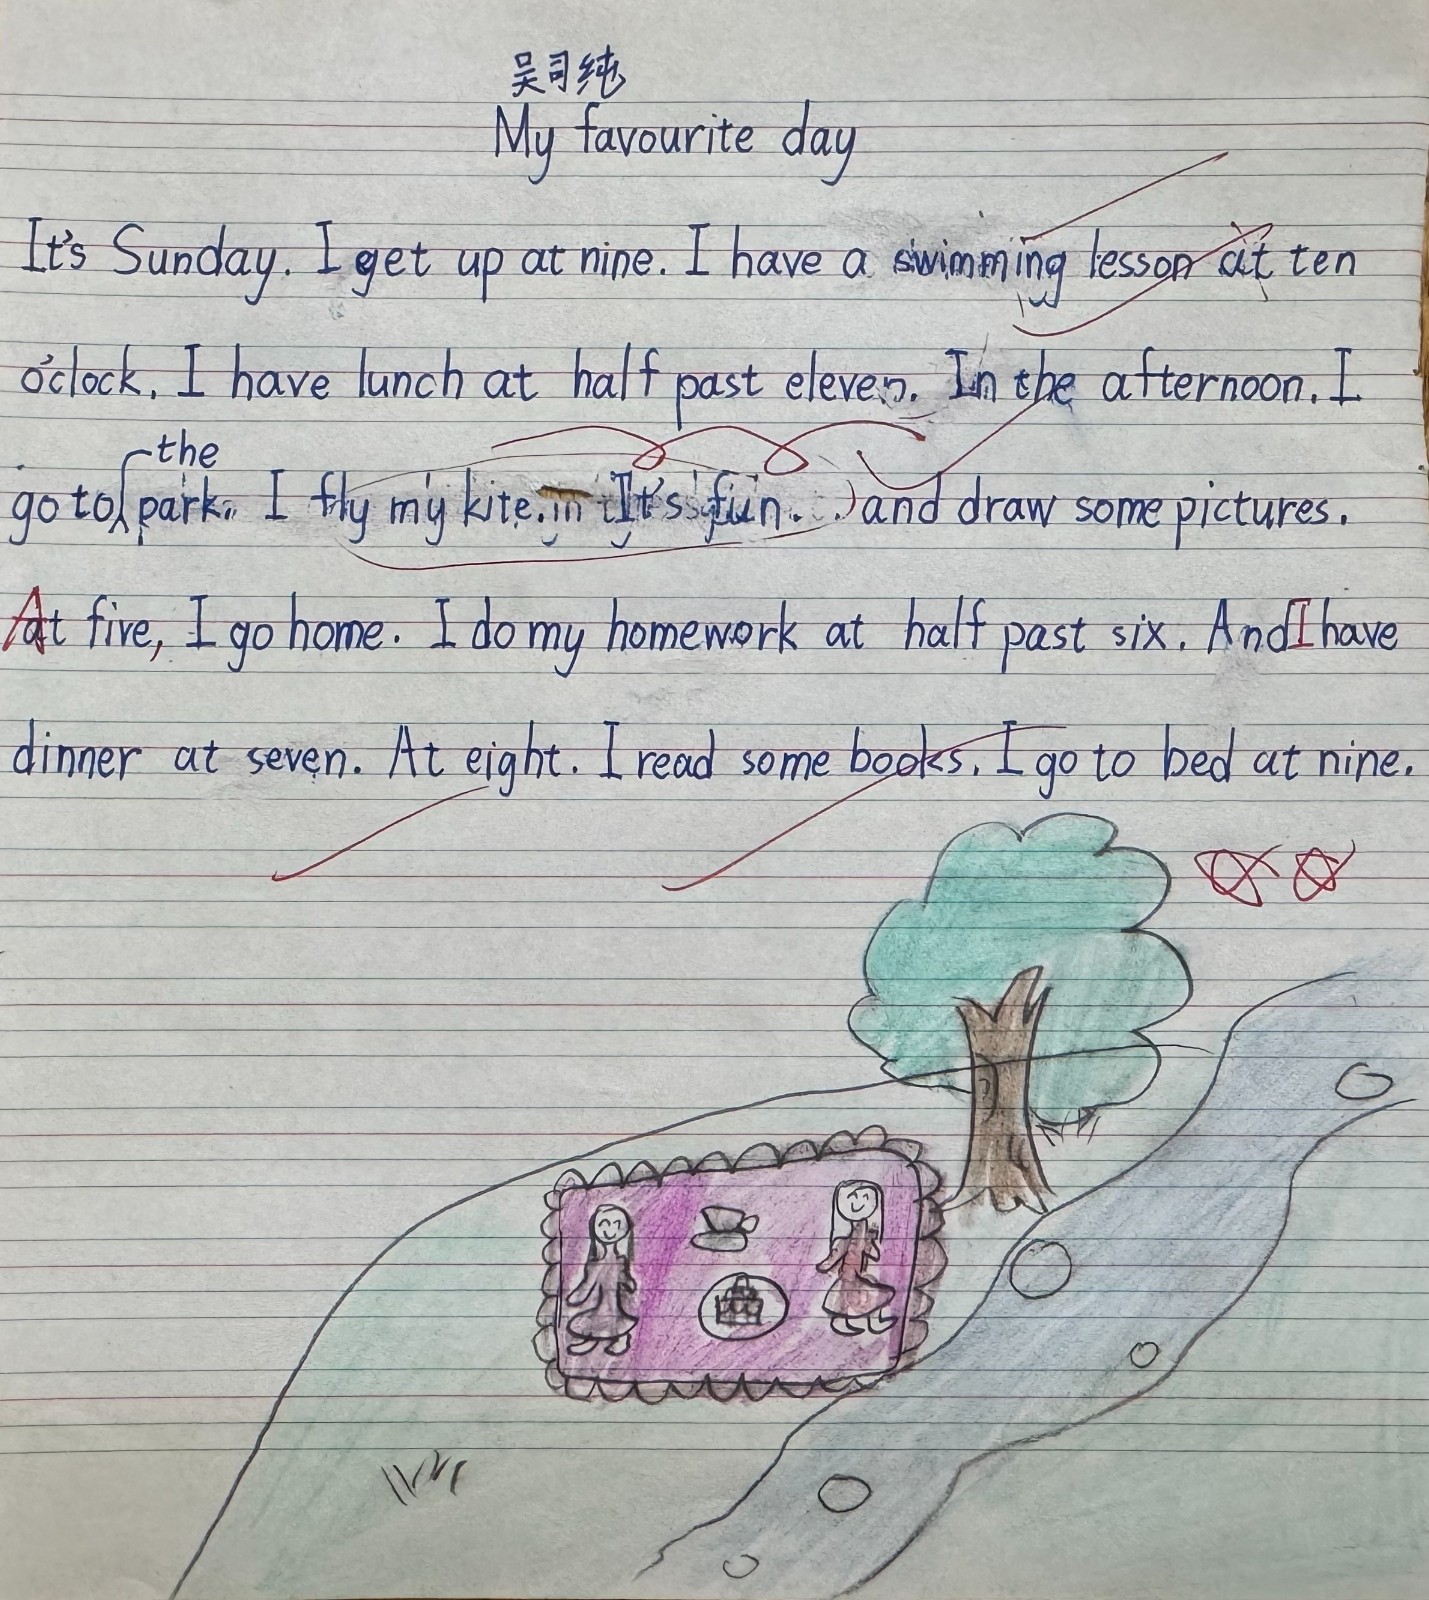 吴司纯
My favourite day
It's Sunday. I get up at nine. I have a swimming lesson at ten
o'clock. I have lunch at half past eleven. In the afternoon. I
the
go to park. I fly my kite. It's fun. and draw some pictures.
At five, I go home. I do my homework at half past six. And I have
dinner at seven. At eight. I read some books. I go to bed at nine.